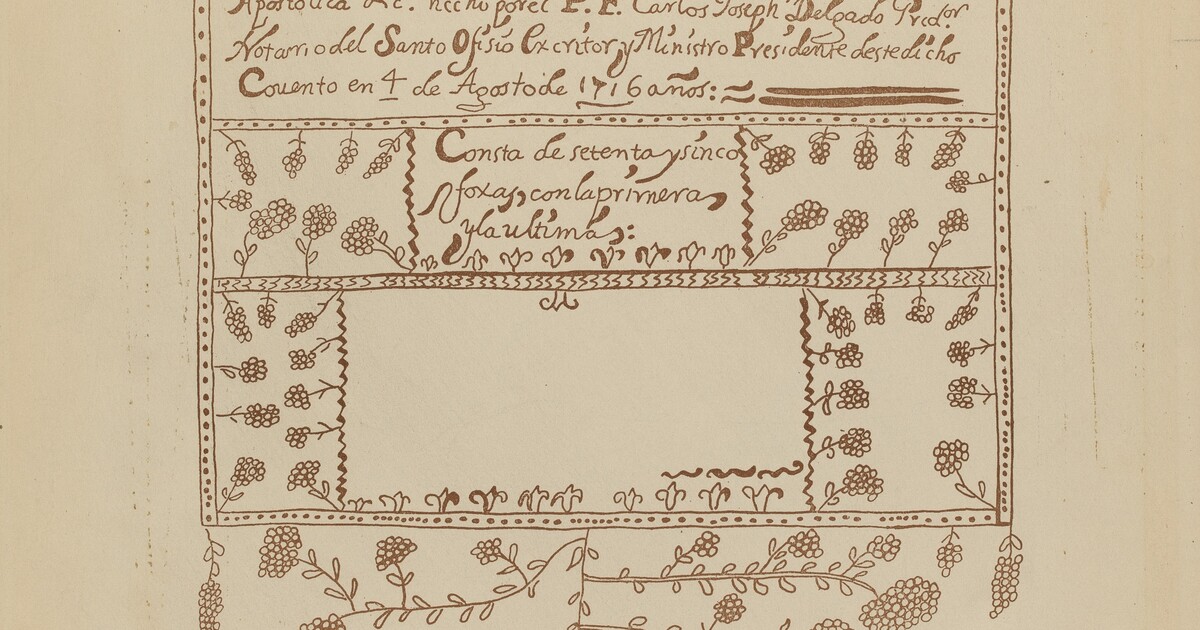 Apostolica &c. hecho por el P. F. Carlos Joseph Delgado Prcdor
Notario del Santo Ofisio Excritor y Ministro Presidente deste dicho
Couento en 4 de Agosto de 1716 años:
Consta de setenta y sinco
foxas, con la primera
y la ultima: